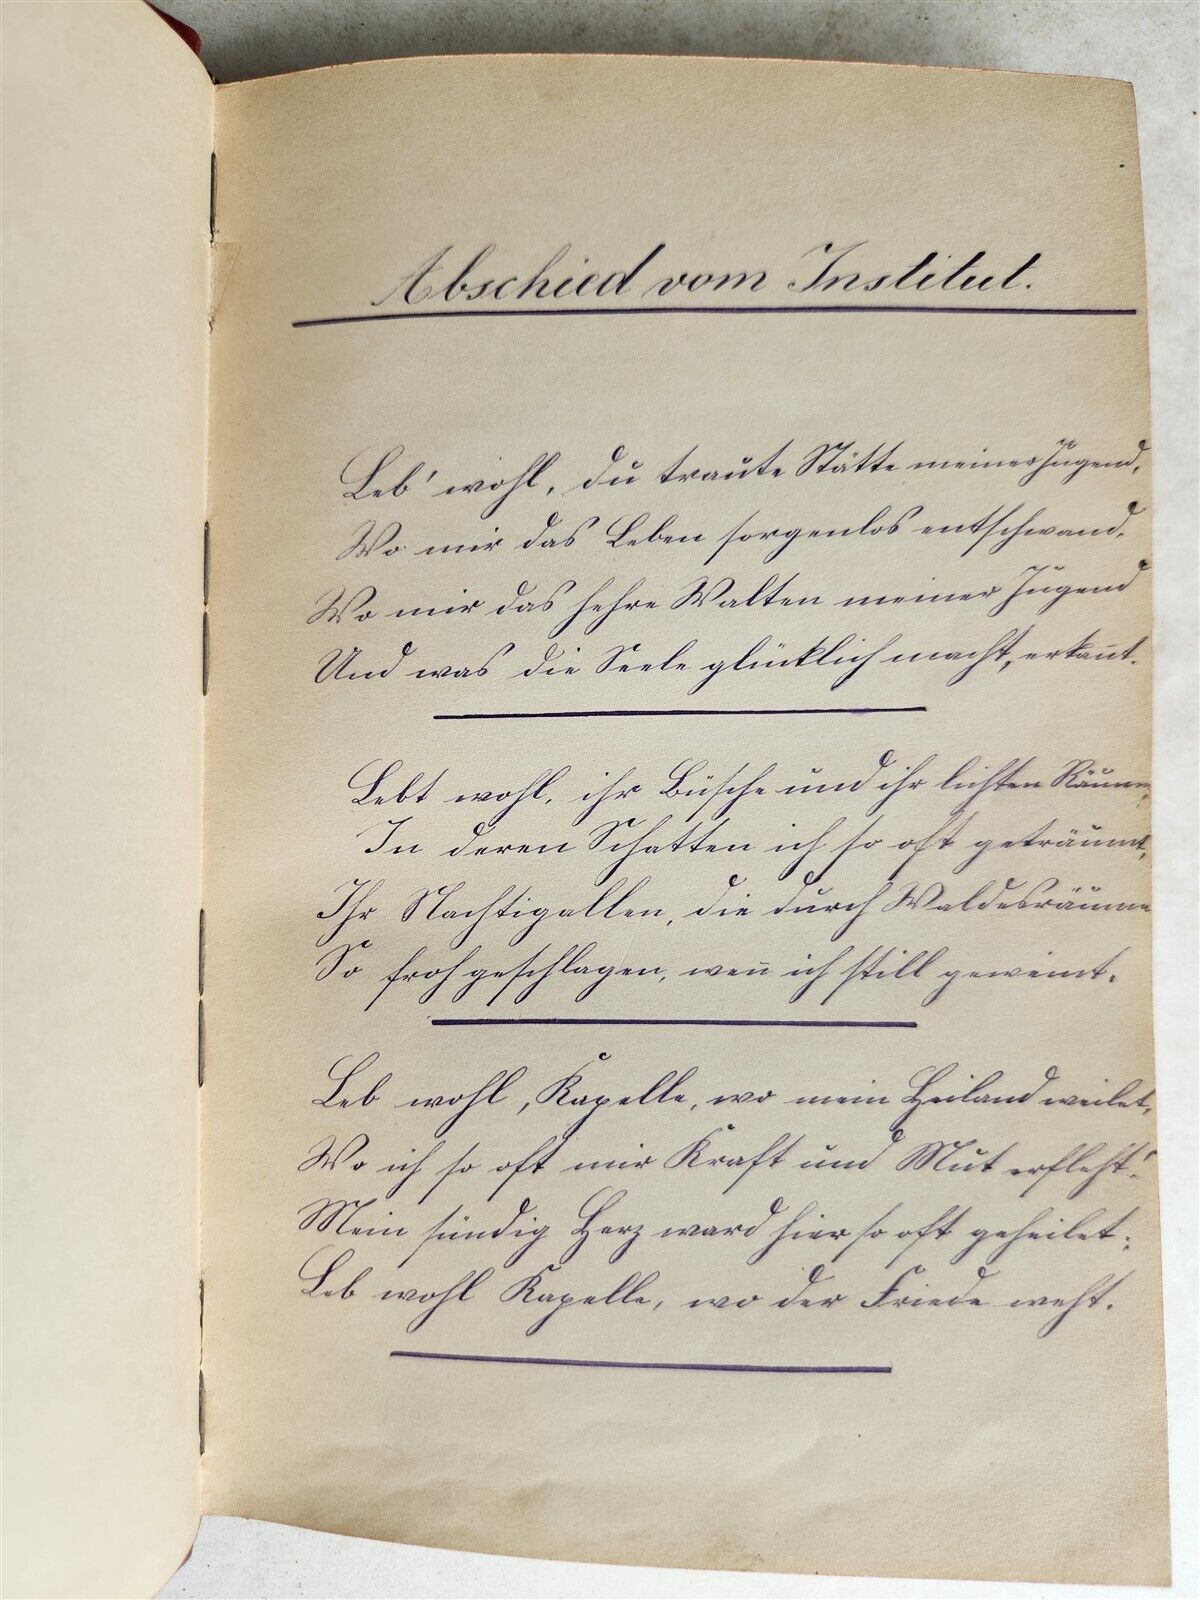 Abschied vom Institut.
Leb' wohl, du traute Stätte meiner Jugend,
Wo mir das Leben sorgenlos entschwand.
Wo mir das hehre Walten meiner Jugend
Und was die Seele glücklich macht, erkan̄t.
Lebt wohl, ihr Büsche und ihr lichten Räume,
In deren Schatten ich so oft geträumt,
Ihr Nachtigallen, die durch Waldesräume
So froh geschlagen, wen̄ ich still geweint.
Leb wohl, Kapelle, wo mein Heiland weilet,
Wo ich so oft mir Kraft und Mut erfleht!
Mein sündig Herz ward hier so oft geheilet;
Leb wohl Kapelle, wo der Friede weht.